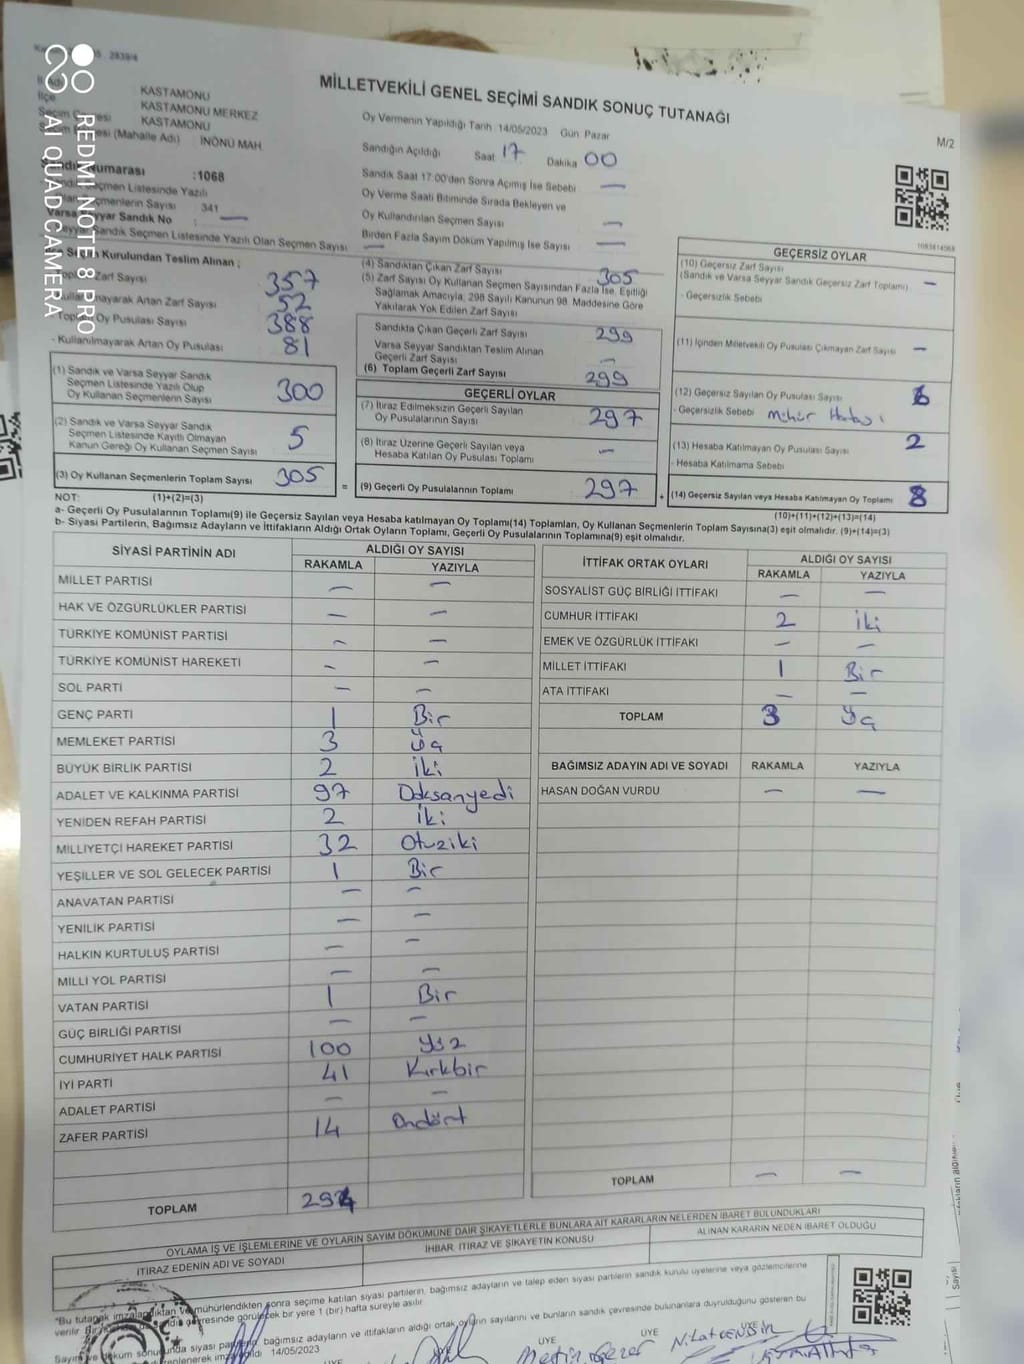 REDMI NOTE 8 PRO
AI QUAD CAMERA
MİLLETVEKİLİ GENEL SEÇİMİ SANDIK SONUÇ TUTANAĞI
M/2
KASTAMONU
İlçe KASTAMONU MERKEZ
KASTAMONU
(Mahalle Adı) İNÖNÜ MAH.
:1068
Seçmen Listesinde Yazılı
Seçmenlerin Sayısı 341
Varsa Seyyar Sandık No —
Seyyar Sandık Seçmen Listesinde Yazılı Olan Seçmen Sayısı —
Oy Vermenin Yapıldığı Tarih 14/05/2023 Gün Pazar
Sandığın Açıldığı Saat 17 Dakika 00
Sandık Saat 17:00'den Sonra Açımış İse Sebebi —
Oy Verme Saati Bitiminde Sırada Bekleyen ve
Oy Kullandırılan Seçmen Sayısı —
Birden Fazla Sayım Döküm Yapılmış İse Sayısı —
Seçim Kurulundan Teslim Alınan ;
Zarf Sayısı 357
Kullanılmayarak Artan Zarf Sayısı 52
Toplam Oy Pusulası Sayısı 388
- Kullanılmayarak Artan Oy Pusulası 81
(1) Sandık ve Varsa Seyyar Sandık
Seçmen Listesinde Yazılı Olup
Oy Kullanan Seçmenlerin Sayısı 300
(2) Sandık ve Varsa Seyyar Sandık
Seçmen Listesinde Kayıtlı Olmayan
Kanun Gereği Oy Kullanan Seçmen Sayısı 5
(3) Oy Kullanan Seçmenlerin Toplam Sayısı 305
(4) Sandıktan Çıkan Zarf Sayısı 305
(5) Zarf Sayısı Oy Kullanan Seçmen Sayısından Fazla İse, Eşitliği
Sağlamak Amacıyla, 298 Sayılı Kanunun 98. Maddesine Göre
Yakılarak Yok Edilen Zarf Sayısı
Sandıkta Çıkan Geçerli Zarf Sayısı 299
Varsa Seyyar Sandıktan Teslim Alınan
Geçerli Zarf Sayısı —
(6) Toplam Geçerli Zarf Sayısı 299
GEÇERLİ OYLAR
(7) İtiraz Edilmeksizin Geçerli Sayılan
Oy Pusulalarının Sayısı 297
(8) İtiraz Üzerine Geçerli Sayılan veya
Hesaba Katılan Oy Pusulası Toplamı —
= (9) Geçerli Oy Pusulalarının Toplamı 297 +
GEÇERSİZ OYLAR
(10) Geçersiz Zarf Sayısı
(Sandık ve Varsa Seyyar Sandık Geçersiz Zarf Toplamı) —
- Geçersizlik Sebebi
(11) İçinden Milletvekili Oy Pusulası Çıkmayan Zarf Sayısı —
(12) Geçersiz Sayılan Oy Pusulası Sayısı 6
- Geçersizlik Sebebi Mühür Hatası
(13) Hesaba Katılmayan Oy Pusulası Sayısı 2
- Hesaba Katılmama Sebebi
(14) Geçersiz Sayılan veya Hesaba Katılmayan Oy Toplamı 8
NOT: (1)+(2)=(3) (10)+(11)+(12)+(13)=(14)
a- Geçerli Oy Pusulalarının Toplamı(9) ile Geçersiz Sayılan veya Hesaba katılmayan Oy Toplamı(14) Toplamları, Oy Kullanan Seçmenlerin Toplam Sayısına(3) eşit olmalıdır. (9)+(14)=(3)
b- Siyasi Partilerin, Bağımsız Adayların ve İttifakların Aldığı Ortak Oyların Toplamı, Geçerli Oy Pusulalarının Toplamına(9) eşit olmalıdır.
SİYASİ PARTİNİN ADI ALDIĞI OY SAYISI
RAKAMLA YAZIYLA
MİLLET PARTİSİ — —
HAK VE ÖZGÜRLÜKLER PARTİSİ — —
TÜRKİYE KOMÜNİST PARTİSİ — —
TÜRKİYE KOMÜNİST HAREKETİ — —
SOL PARTİ — —
GENÇ PARTİ 1 Bir
MEMLEKET PARTİSİ 3 Üç
BÜYÜK BİRLİK PARTİSİ 2 İki
ADALET VE KALKINMA PARTİSİ 97 Doksanyedi
YENİDEN REFAH PARTİSİ 2 İki
MİLLİYETÇİ HAREKET PARTİSİ 32 Otuziki
YEŞİLLER VE SOL GELECEK PARTİSİ 1 Bir
ANAVATAN PARTİSİ — —
YENİLİK PARTİSİ — —
HALKIN KURTULUŞ PARTİSİ — —
MİLLİ YOL PARTİSİ — —
VATAN PARTİSİ 1 Bir
GÜÇ BİRLİĞİ PARTİSİ — —
CUMHURİYET HALK PARTİSİ 100 Yüz
İYİ PARTİ 41 Kırkbir
ADALET PARTİSİ — —
ZAFER PARTİSİ 14 Ondört
TOPLAM 294
İTTİFAK ORTAK OYLARI ALDIĞI OY SAYISI
RAKAMLA YAZIYLA
SOSYALİST GÜÇ BİRLİĞİ İTTİFAKI — —
CUMHUR İTTİFAKI 2 İki
EMEK VE ÖZGÜRLÜK İTTİFAKI — —
MİLLET İTTİFAKI 1 Bir
ATA İTTİFAKI — —
TOPLAM 3 Üç
BAĞIMSIZ ADAYIN ADI VE SOYADI RAKAMLA YAZIYLA
HASAN DOĞAN VURDU — —
TOPLAM — —
OYLAMA İŞ VE İŞLEMLERİNE VE OYLARIN SAYIM DÖKÜMÜNE DAİR ŞİKAYETLERLE BUNLARA AİT KARARLARIN NELERDEN İBARET BULUNDUKLARI
İTİRAZ EDENİN ADI VE SOYADI İHBAR, İTİRAZ VE ŞİKAYETİN KONUSU ALINAN KARARIN NEDEN İBARET OLDUĞU
sonra seçime katılan siyasi partilerin, bağımsız adayların ve talep eden siyasi partilerin sandık kurulu üyelerine veya gözlemcilerine
görülecek bir yere 1 (bir) hafta süreyle asılır.
bağımsız adayların ve ittifakların aldığı ortak oyların sayılarını ve bunların sandık çevresinde bulunanlara duyrulduğunu gösteren bu
14/05/2023
ÜYE ÜYE ÜYE